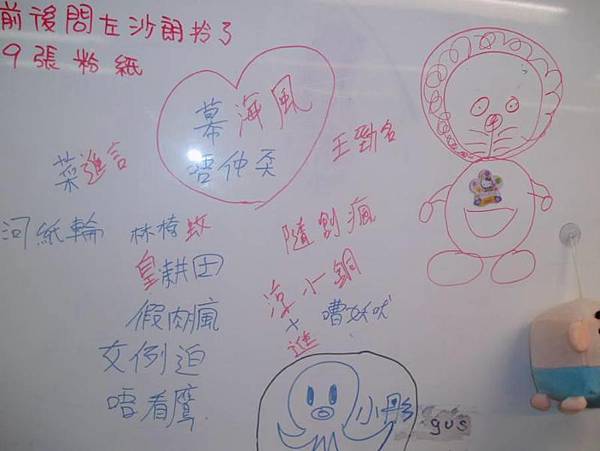 前後問左沙朗拎了
9張粉紙
幕海風
唔仲 
菜進言
王勁名
河紙輪
林椅蚊
皇耕田
假肉瘋
文例迫
唔看鷹
隨創瘋
淳小鋼
x 嘈妖吠
進
小彤
gus